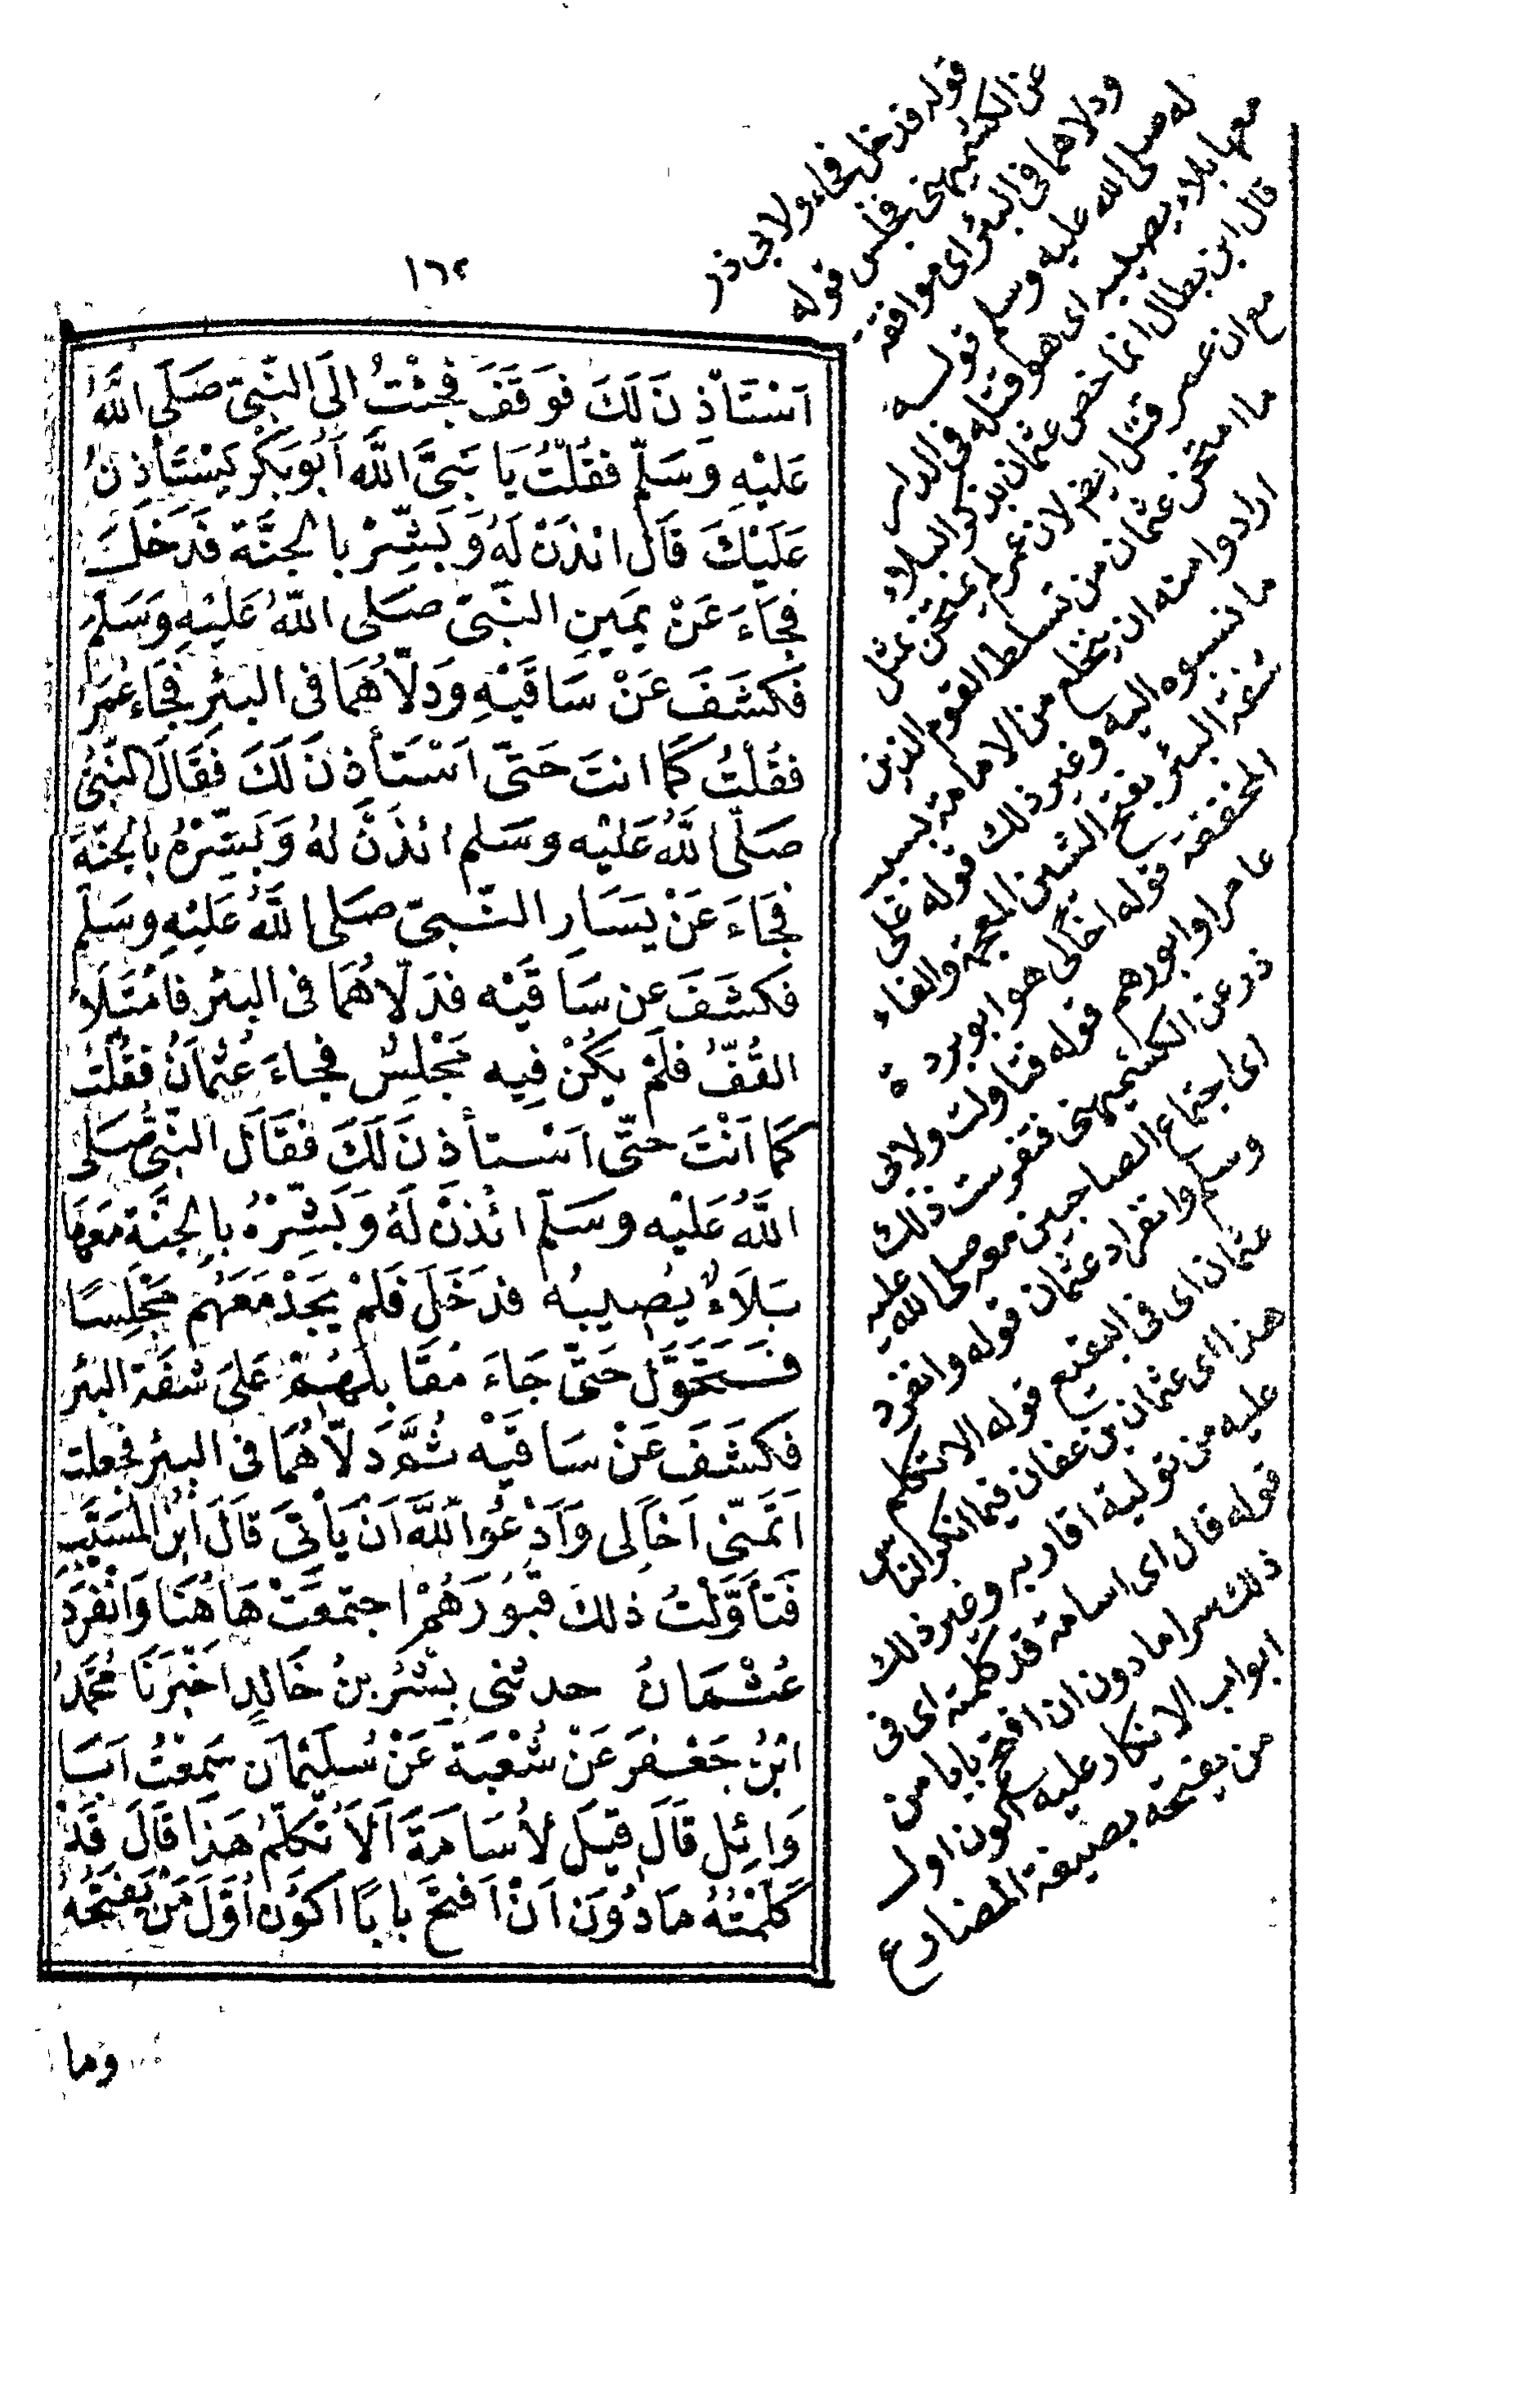 ١٦٢
اَسْتَأْذِنَ لَكَ فَوَقَفَ فَجِئْتُ اِلَى النَّبِيِّ صَلَّى اللَّهُ
عَلَيْهِ وَسَلَّمَ فَقُلْتُ يَا نَبِيَّ اللَّهِ اَبُو بَكْرٍ يَسْتَأْذِنُ
عَلَيْكَ قَالَ ائْذَنْ لَهُ وَبَشِّرْهُ بِالْجَنَّةِ فَدَخَلَ
فَجَاءَ عَنْ يَمِينِ النَّبِيِّ صَلَّى اللَّهُ عَلَيْهِ وَسَلَّمَ
فَكَشَفَ عَنْ سَاقَيْهِ وَدَلَّاهُمَا فِى الْبِئْرِ فَجَاءَ عُمَرُ
فَقُلْتُ كَمَا اَنْتَ حَتَّى اَسْتَأْذِنَ لَكَ فَقَالَ النَّبِيُّ
صَلَّى اللَّهُ عَلَيْهِ وَسَلَّمَ ائْذَنْ لَهُ وَبَشِّرْهُ بِالْجَنَّةِ
فَجَاءَ عَنْ يَسَارِ النَّبِيِّ صَلَّى اللَّهُ عَلَيْهِ وَسَلَّمَ
فَكَشَفَ عَنْ سَاقَيْهِ فَدَلَّاهُمَا فِى الْبِئْرِ فَامْتَلَأَ
الْقُفُّ فَلَمْ يَكُنْ فِيهِ مَجْلِسٌ فَجَاءَ عُثْمَانُ فَقُلْتُ
كَمَا اَنْتَ حَتَّى اَسْتَأْذِنَ لَكَ فَقَالَ النَّبِيُّ صَلَّى
اللَّهُ عَلَيْهِ وَسَلَّمَ ائْذَنْ لَهُ وَبَشِّرْهُ بِالْجَنَّةِ مَعَهَا
بَلَاءٌ يُصِيبُهُ فَدَخَلَ فَلَمْ يَجِدْ مَعَهُمْ مَجْلِسًا
فَتَحَوَّلَ حَتَّى جَاءَ مُقَابِلَهُمْ عَلَى شَفَةِ الْبِئْرِ
فَكَشَفَ عَنْ سَاقَيْهِ ثُمَّ دَلَّاهُمَا فِى الْبِئْرِ فَجَعَلْتُ
اَتَمَنَّى اَخًا لِى وَاَدْعُو اللَّهَ اَنْ يَأْتِيَ قَالَ ابْنُ الْمُسَيَّبِ
فَتَأَوَّلْتُ ذٰلِكَ قُبُورَهُمْ اجْتَمَعَتْ هَاهُنَا وَانْفَرَدَ
عُثْمَانُ حدثنى بِشْرُ بْنُ خَالِدٍ اَخْبَرَنَا مُحَمَّدُ
ابْنُ جَعْفَرٍ عَنْ شُعْبَةَ عَنْ سُلَيْمَانَ سَمِعْتُ اَبَا
وَائِلٍ قَالَ قِيلَ لِأُسَامَةَ اَلَا تُكَلِّمُ هَذَا قَالَ قَدْ
كَلَّمْتُهُ مَا دُونَ اَنْ اَفْتَحَ بَابًا اَكُونُ اَوَّلَ مَنْ يَفْتَحُهُ
وما
قوله فدخل فجاء ولابى ذر
عن الكشميهنى فجلس قوله
ودلاهما فى البئر اى موافقة
له صلى الله عليه وسلم قوله
معها بلاء يصيبه اى هو قتله فى الدار
قال ابن بطال انما خص عثمان بذكر البلاء
مع ان عمر قتل ايضا لان عمر لم يمتحن بمثل
ما امتحن عثمان من تسلط القوم الذين
ارادوا منه ان ينخلع من الامامة بسبب
ما نسبوه اليه وغير ذلك قوله على
شفة البئر بفتح الشين المعجمة والفاء
المخففة قوله اخا لى هو ابو بردة
عامر او ابورهم قوله فتأولت ولابى
ذر عن الكشميهنى فتفرست ذلك
اى اجتماع الصاحبين معه صلى الله عليه
وسلم وانفراد عثمان قوله وانفرد
عثمان اى فى البقيع قوله الا تكلم
هذا اى عثمان بن عفان فيما انكر الناس
عليه من تولية اقاربه وغير ذلك
قوله قال اى اسامة قد كلمته اى فى
ذلك سرا مادون ان افتح بابا من
ابواب الانكار عليه اكون اول
من يفتحه بصيغة المضارع